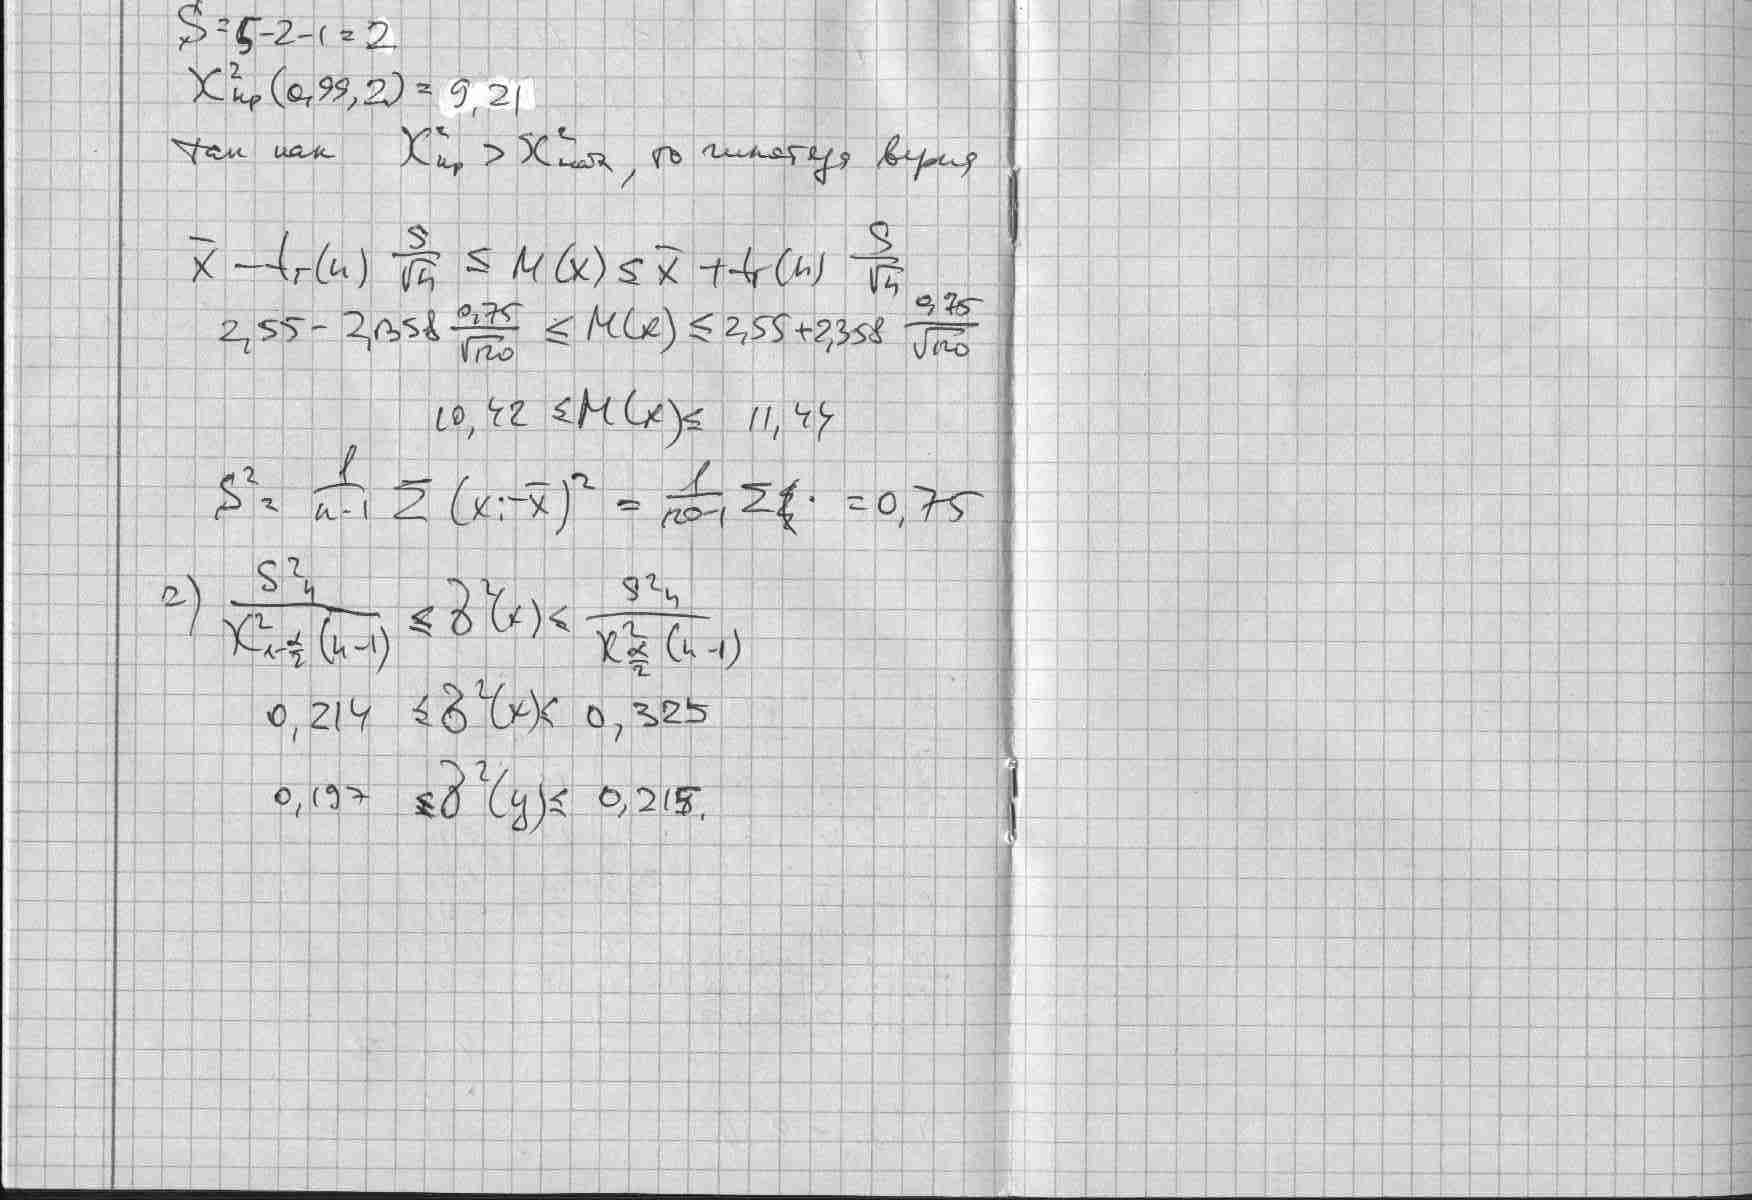 S = 5-2-1 = 2
χ²кр (0,99, 2) = 9,21
так как χ²кр > χ²набл, то гипотеза верна
x̄ - tγ(n) S/√n ≤ M(x) ≤ x̄ + tγ(n) S/√n
2,55 - 2,358 0,75/√120 ≤ M(x) ≤ 2,55 + 2,358 0,75/√120
10,42 ≤ M(x) ≤ 11,44
S² = 1/(n-1) Σ (xi - x̄)² = 1/(120-1) Σ · = 0,75
2) S²n / χ²1-α/2 (n-1) ≤ ∂²(x) ≤ S²n / χ²α/2 (n-1)
0,214 ≤ ∂²(x) ≤ 0,325
0,197 ≤ ∂²(y) ≤ 0,218.